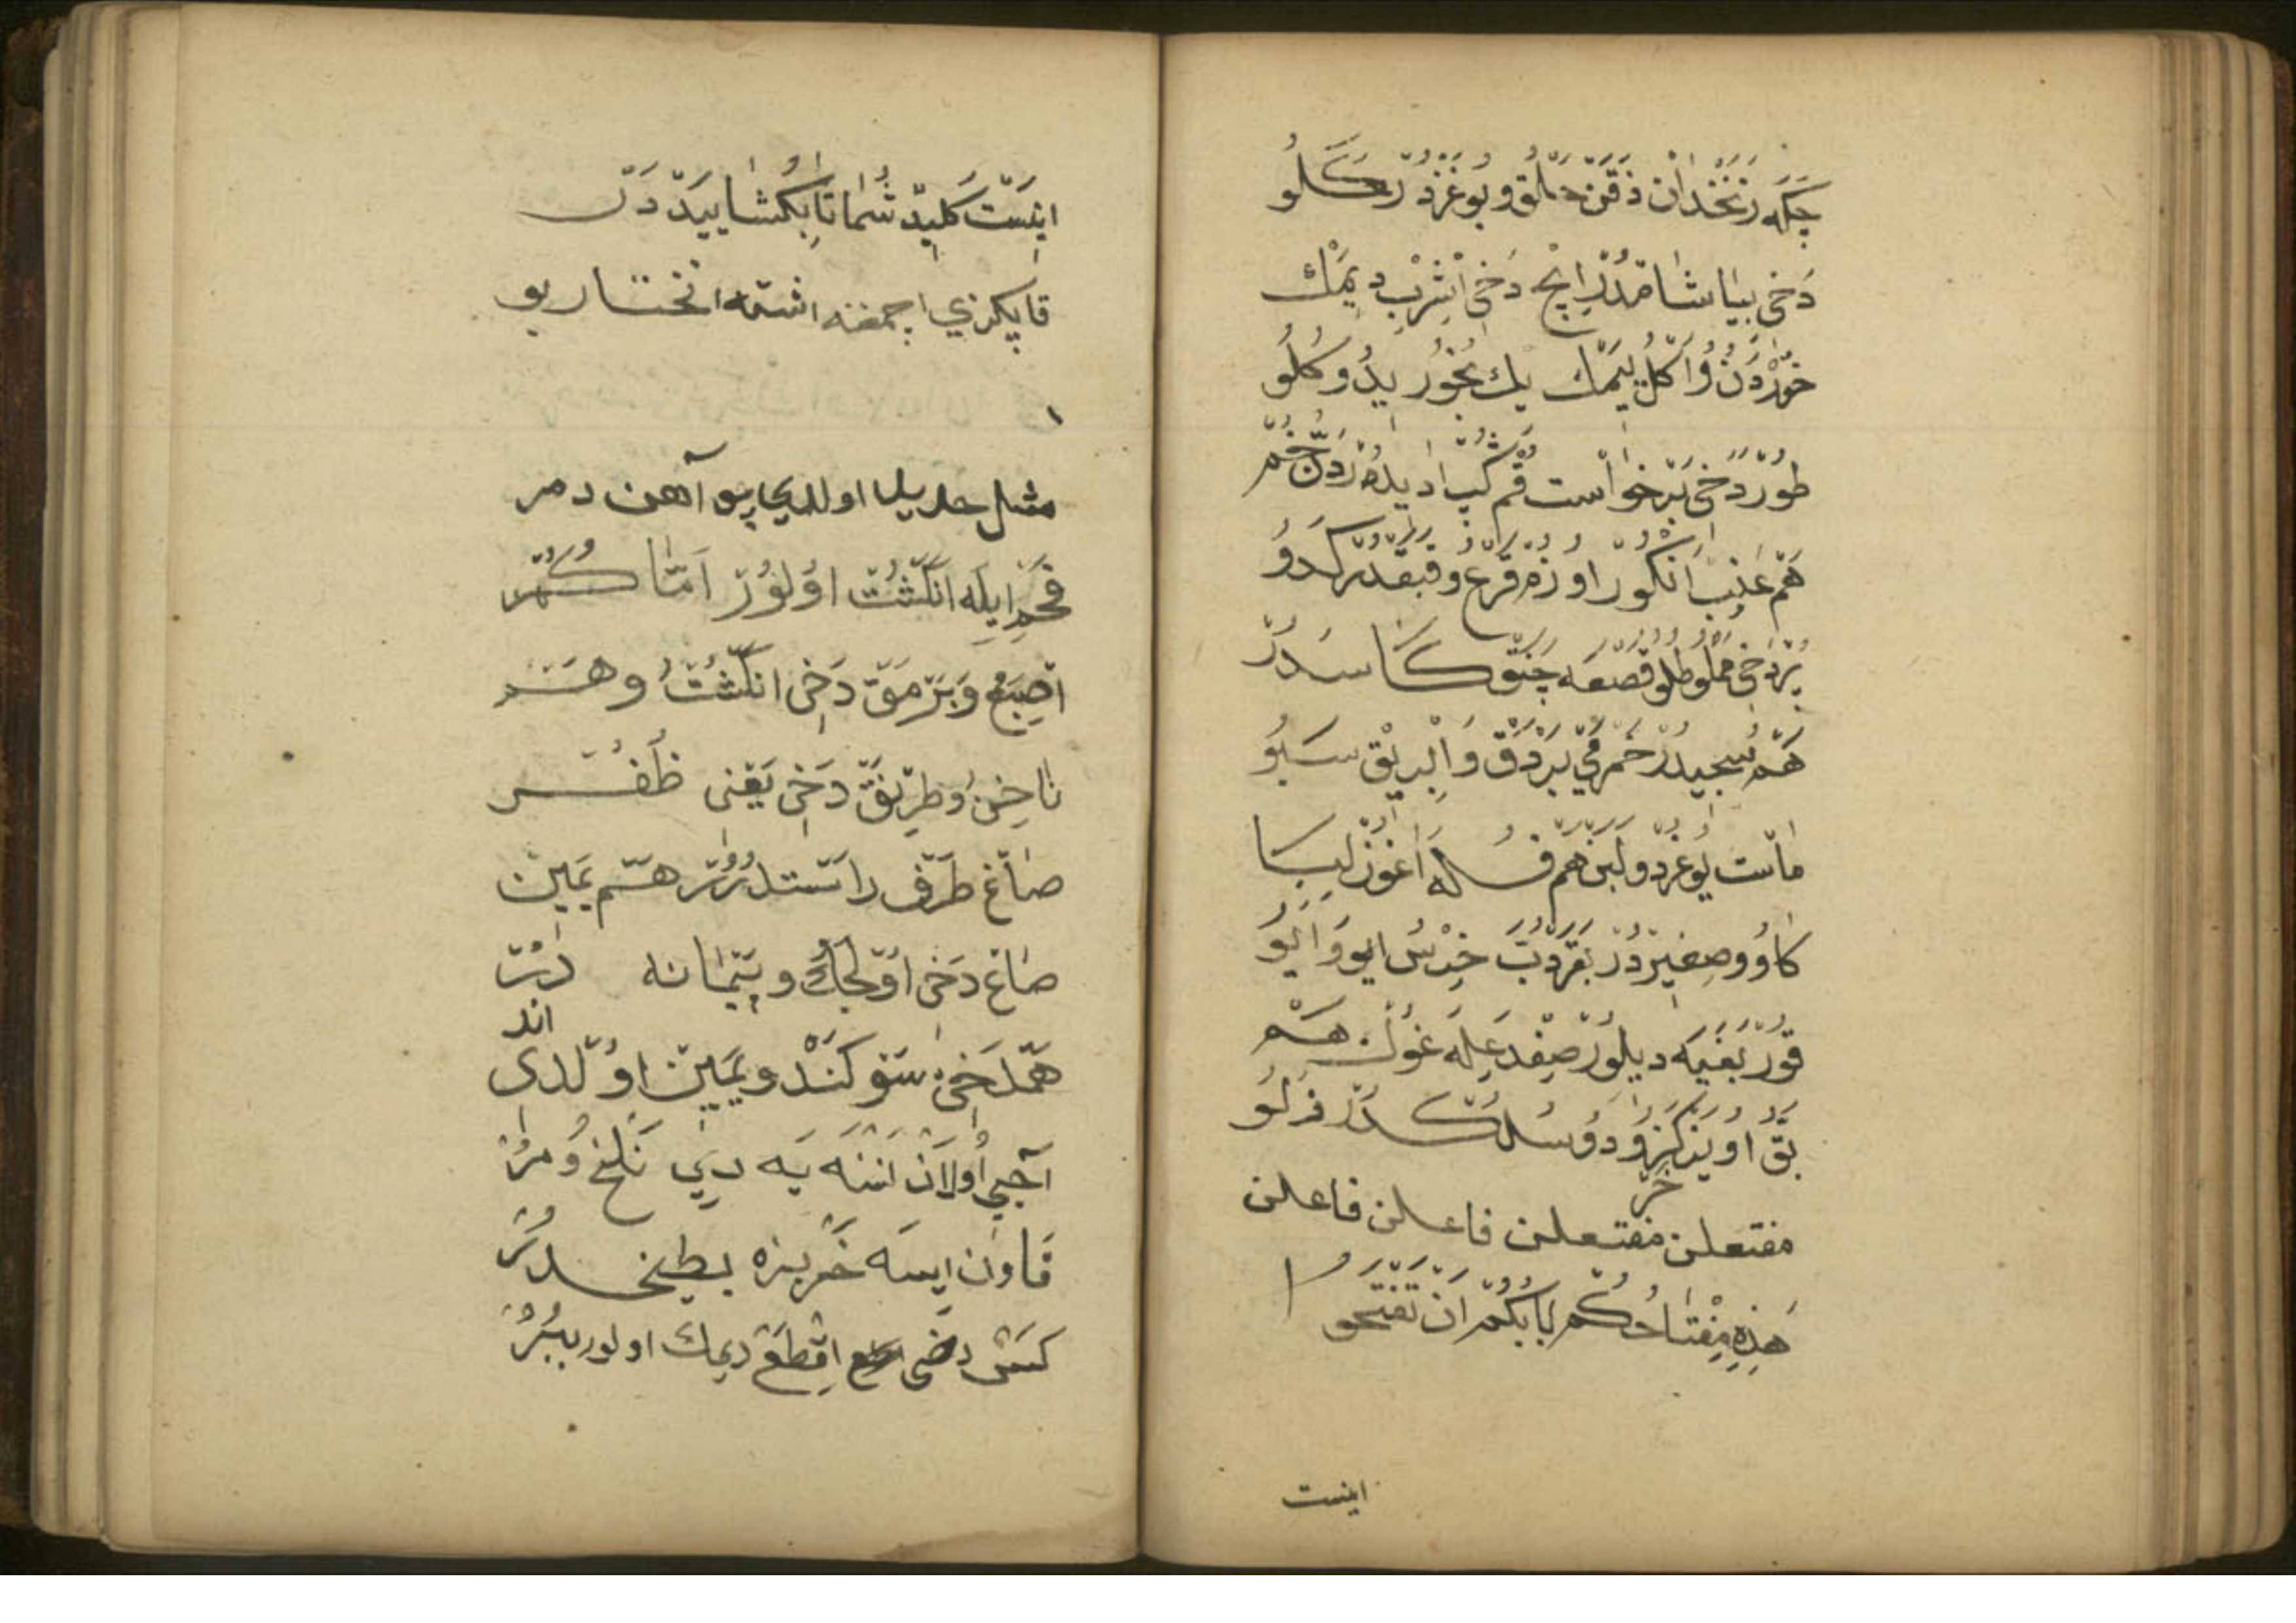 چكه زنخدان ذقن حلق و بوغزدر كلو
دخی بیاشامدر ایچ دخی اشرب دیمك
خوردن و اكل یمك یك بخورید و كلو
طور دخی برخواست قم كب ادیله دن خم
هم عنب انكور اوزم قرع و قبقدر كدو
بر دخی مملو طلو قصعه چنق كاسدر
هم سجیدر خمر می بردق و ابریق سبو
ماست یوغرد و لبن هم فله اغوز لبا
كاو و صغیر در بقر دب خرس ایو و ایو
قور بغیه دیلور صفدعله غوك هم
بق اویز كز و دو سلكدر فزلو
خر
مفتعلن مفتعلن فاعلن فاعلن
هذه مفتاحكم بابكم ان تفتحوا
اینست
اینست كلید شما تا بكشایید دن
قاپكزی اچمغه اشته انختار بو
مثل حدیدا اولدی پو آهن دمر
فحم ایله انكشت اولور اما كمر
اصبع و برمق دخی انكشت و هم
ناخن و طرنق دخی یعنی ظفر
صاغ طرف راستدرر هم یمین
صاغ دخی اولجك و پیمانه در
اند
همدخی سوكند و یمین اولدی
آجی اولان اننه یه دی تلخ و مر
قاون ایسه خربزه بطیخدر
كس دخی اقطع دیمك اولور ببر